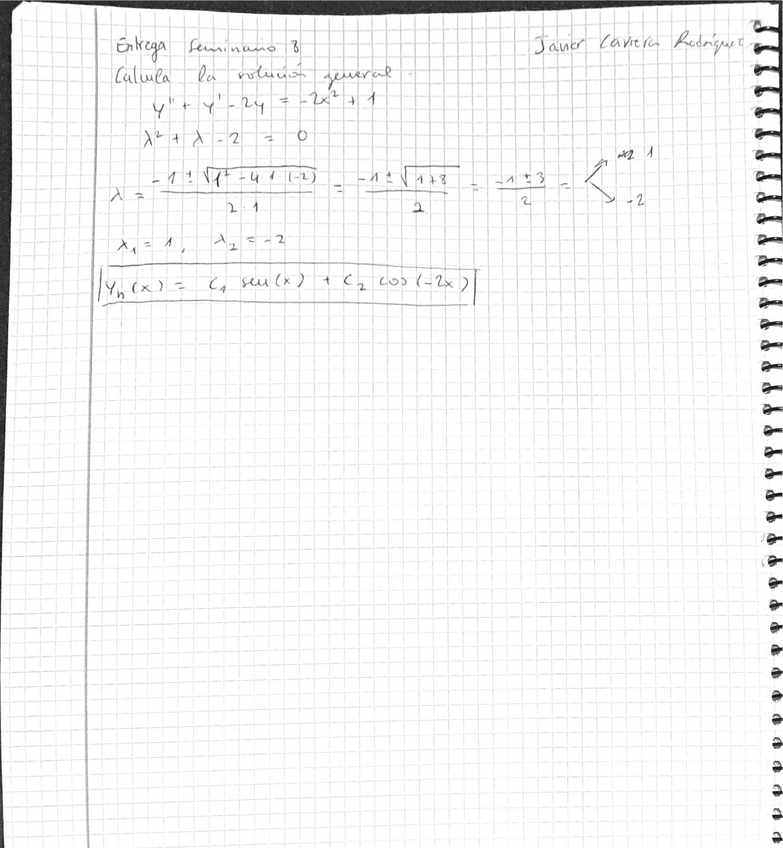 Entrega Seminario 8 Javier Cariera Rodríguez
Calcula la solución general.
y'' + y' - 2y = -2x² + 1
λ² + λ - 2 = 0
λ = (-1 ± √(1² - 4·1·(-2))) / (2·1) = (-1 ± √(1+8)) / 2 = (-1 ± 3) / 2 = 1, -2
λ₁ = 1, λ₂ = -2
y_h(x) = C₁ sen(x) + C₂ cos(-2x)